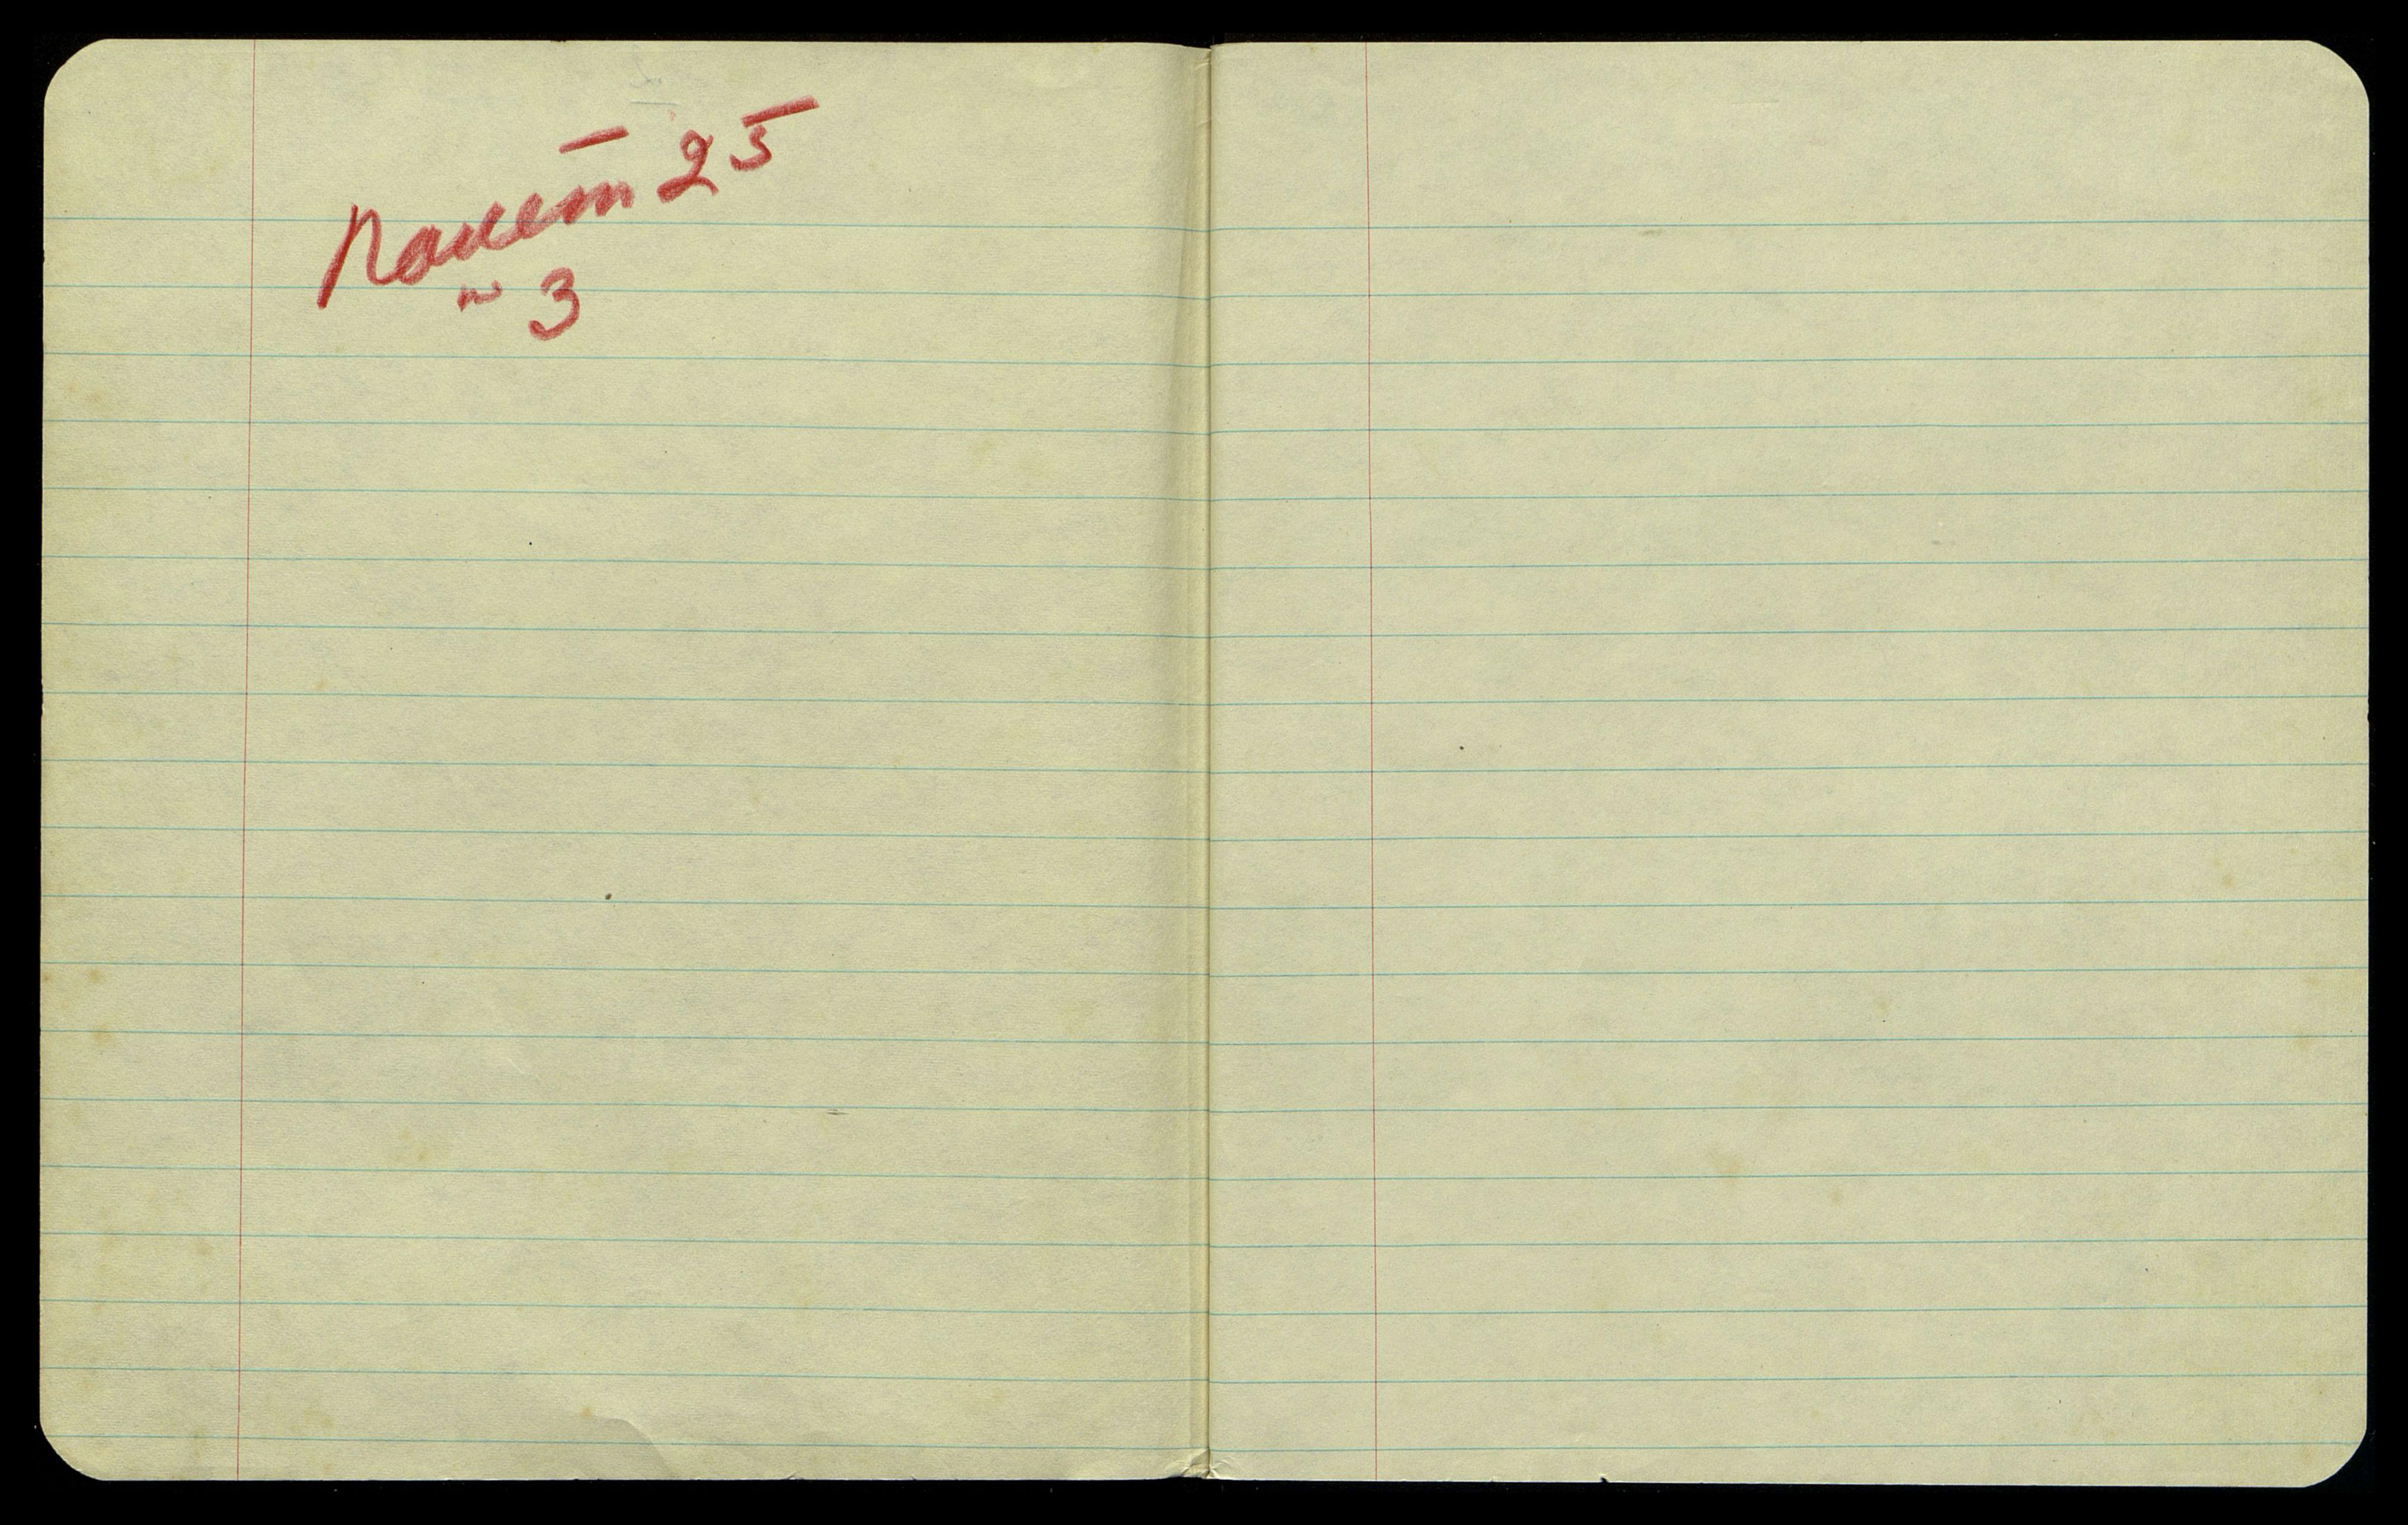 Пакет 25
№ 3